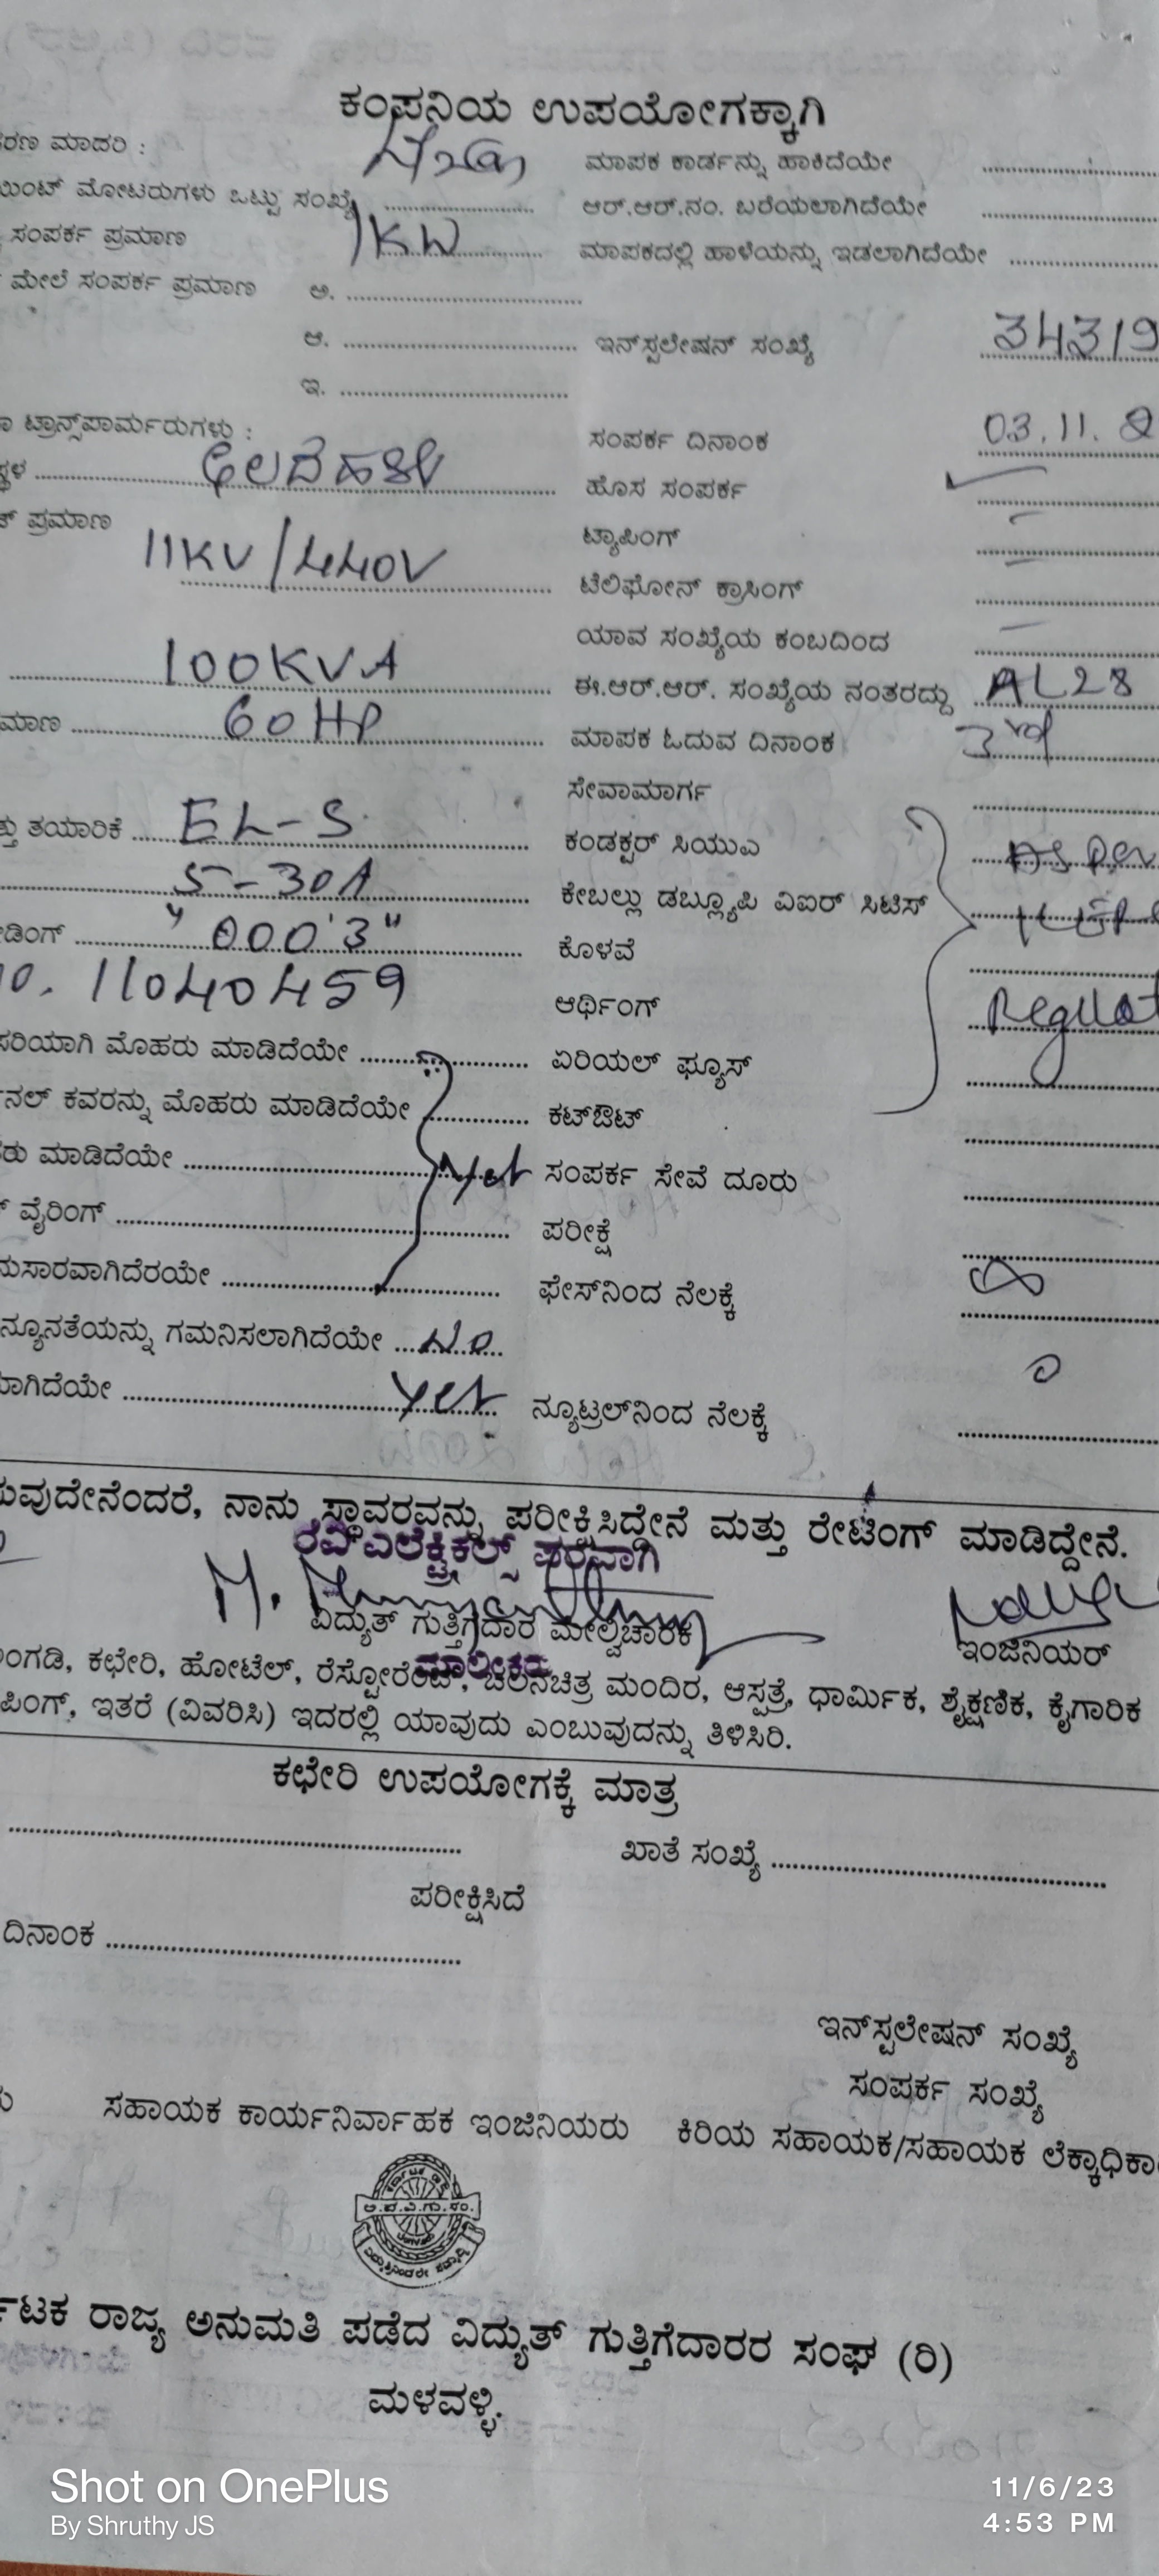 ಕಂಪನಿಯ ಉಪಯೋಗಕ್ಕಾಗಿ
ರಣ ಮಾದರಿ : ಮಾಪಕ ಕಾರ್ಡನ್ನು ಹಾಕಿದೆಯೇ
ಯಿಂಟ್ ಮೋಟರುಗಳು ಒಟ್ಟು ಸಂಖ್ಯೆ ಆರ್.ಆರ್.ನಂ. ಬರೆಯಲಾಗಿದೆಯೇ
ಸಂಪರ್ಕ ಪ್ರಮಾಣ 1KW ಮಾಪಕದಲ್ಲಿ ಹಾಳೆಯನ್ನು ಇಡಲಾಗಿದೆಯೇ
ಮೇಲೆ ಸಂಪರ್ಕ ಪ್ರಮಾಣ ಅ.
ಆ. ಇನ್‌ಸ್ಟಲೇಷನ್ ಸಂಖ್ಯೆ 34319
ಇ.
ಟ್ರಾನ್ಸ್‌ಪಾರ್ಮರುಗಳು : ಸಂಪರ್ಕ ದಿನಾಂಕ 03.11.
ಸ್ಥಳ ಹೊಸ ಸಂಪರ್ಕ
ಪ್ರಮಾಣ 11KV/440V ಟ್ಯಾಪಿಂಗ್
ಟೆಲಿಫೋನ್ ಕ್ರಾಸಿಂಗ್
ಯಾವ ಸಂಖ್ಯೆಯ ಕಂಬದಿಂದ
100KVA ಈ.ಆರ್.ಆರ್. ಸಂಖ್ಯೆಯ ನಂತರದ್ದು AL28
ಮಾಣ 60HP ಮಾಪಕ ಓದುವ ದಿನಾಂಕ 3rd
ಸೇವಾಮಾರ್ಗ
ತ್ತು ತಯಾರಿಕೆ EL-S ಕಂಡಕ್ಟರ್ ಸಿಯುಎ As Per
5-30A ಕೇಬಲ್ಲು ಡಬ್ಲ್ಯೂಪಿ ವಿಐರ್ ಸಿಟಿಸ್
ಡಿಂಗ್ "000'3" ಕೊಳವೆ
0. 11040459 ಆರ್ಥಿಂಗ್
ಸರಿಯಾಗಿ ಮೊಹರು ಮಾಡಿದೆಯೇ ಏರಿಯಲ್ ಫ್ಯೂಸ್
ನಲ್ ಕವರನ್ನು ಮೊಹರು ಮಾಡಿದೆಯೇ ಕಟ್‌ಔಟ್
ರು ಮಾಡಿದೆಯೇ Yes ಸಂಪರ್ಕ ಸೇವೆ ದೂರು
ವೈರಿಂಗ್ ಪರೀಕ್ಷೆ
ನುಸಾರವಾಗಿದೆರಯೇ ಫೇಸ್‌ನಿಂದ ನೆಲಕ್ಕೆ ∞
ನ್ಯೂನತೆಯನ್ನು ಗಮನಿಸಲಾಗಿದೆಯೇ No
ವಾಗಿದೆಯೇ Yes ನ್ಯೂಟ್ರಲ್‌ನಿಂದ ನೆಲಕ್ಕೆ 0
ಸುವುದೇನೆಂದರೆ, ನಾನು ಸ್ಥಾವರವನ್ನು ಪರೀಕ್ಷಿಸಿದ್ದೇನೆ ಮತ್ತು ರೇಟಿಂಗ್ ಮಾಡಿದ್ದೇನೆ.
ರವಿ ಎಲೆಕ್ಟ್ರಿಕಲ್ಸ್ ಪರವಾಗಿ
ವಿದ್ಯುತ್ ಗುತ್ತಿಗೆದಾರ ಮೇಲ್ವಿಚಾರಕ ಇಂಜಿನಿಯರ್
ಮಾಲೀಕರು
ಂಗಡಿ, ಕಛೇರಿ, ಹೋಟೆಲ್, ರೆಸ್ಟೋರೆಂಟ್, ಚಲನಚಿತ್ರ ಮಂದಿರ, ಆಸ್ಪತ್ರೆ, ಧಾರ್ಮಿಕ, ಶೈಕ್ಷಣಿಕ, ಕೈಗಾರಿಕ
ಪಿಂಗ್, ಇತರೆ (ವಿವರಿಸಿ) ಇದರಲ್ಲಿ ಯಾವುದು ಎಂಬುವುದನ್ನು ತಿಳಿಸಿರಿ.
ಕಛೇರಿ ಉಪಯೋಗಕ್ಕೆ ಮಾತ್ರ
ಖಾತೆ ಸಂಖ್ಯೆ
ಪರೀಕ್ಷಿಸಿದೆ
ದಿನಾಂಕ
ಇನ್‌ಸ್ಟಲೇಷನ್ ಸಂಖ್ಯೆ
ಸಂಪರ್ಕ ಸಂಖ್ಯೆ
ಸಹಾಯಕ ಕಾರ್ಯನಿರ್ವಾಹಕ ಇಂಜಿನಿಯರು ಕಿರಿಯ ಸಹಾಯಕ/ಸಹಾಯಕ ಲೆಕ್ಕಾಧಿಕಾ
ಟಕ ರಾಜ್ಯ ಅನುಮತಿ ಪಡೆದ ವಿದ್ಯುತ್ ಗುತ್ತಿಗೆದಾರರ ಸಂಘ (ರಿ)
ಮಳವಳ್ಳಿ.
Shot on OnePlus
By Shruthy JS
11/6/23
4:53 PM